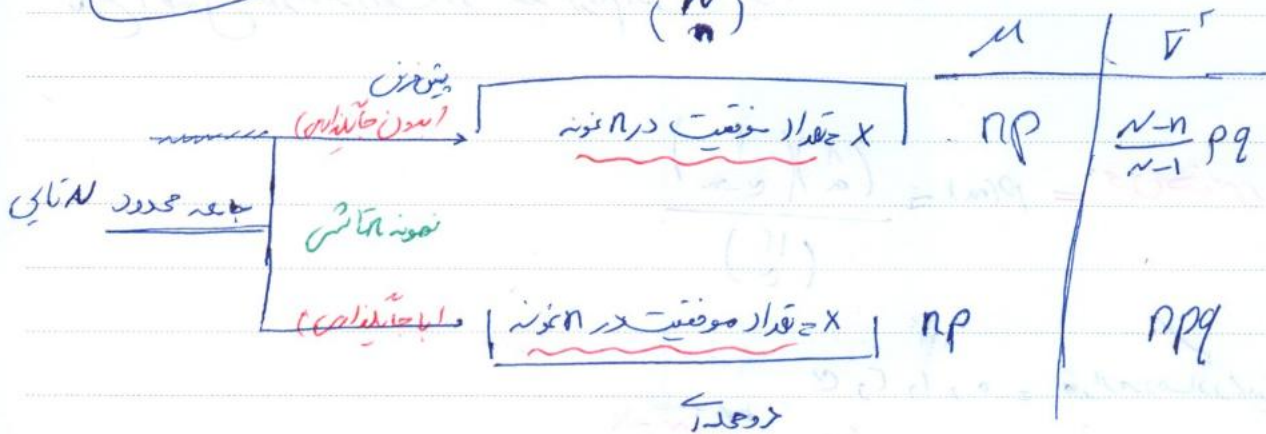 (N n)
μ | σ²
پیش فرض
(بدون جایگذاری)
x = تعداد موفقیت در n نمونه
np | N-n/N-1 pq
جامعه محدود N تایی
نمونه n تائی
(با جایگذاری)
x = تعداد موفقیت در n نمونه
np | npq
دوجمله‌ای